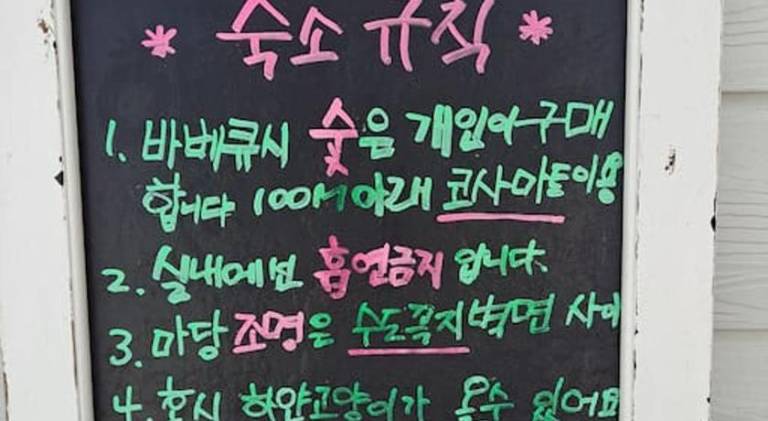 * 숙소 규칙 *
1. 바베큐시 숯은 개인이 구매
합니다 100M 아래 코사마트이용
2. 실내에선 흡연금지 입니다.
3. 마당조명은 수도꼭지벽면 사이
4. 혹시 하얀고양이가 올수 있어요